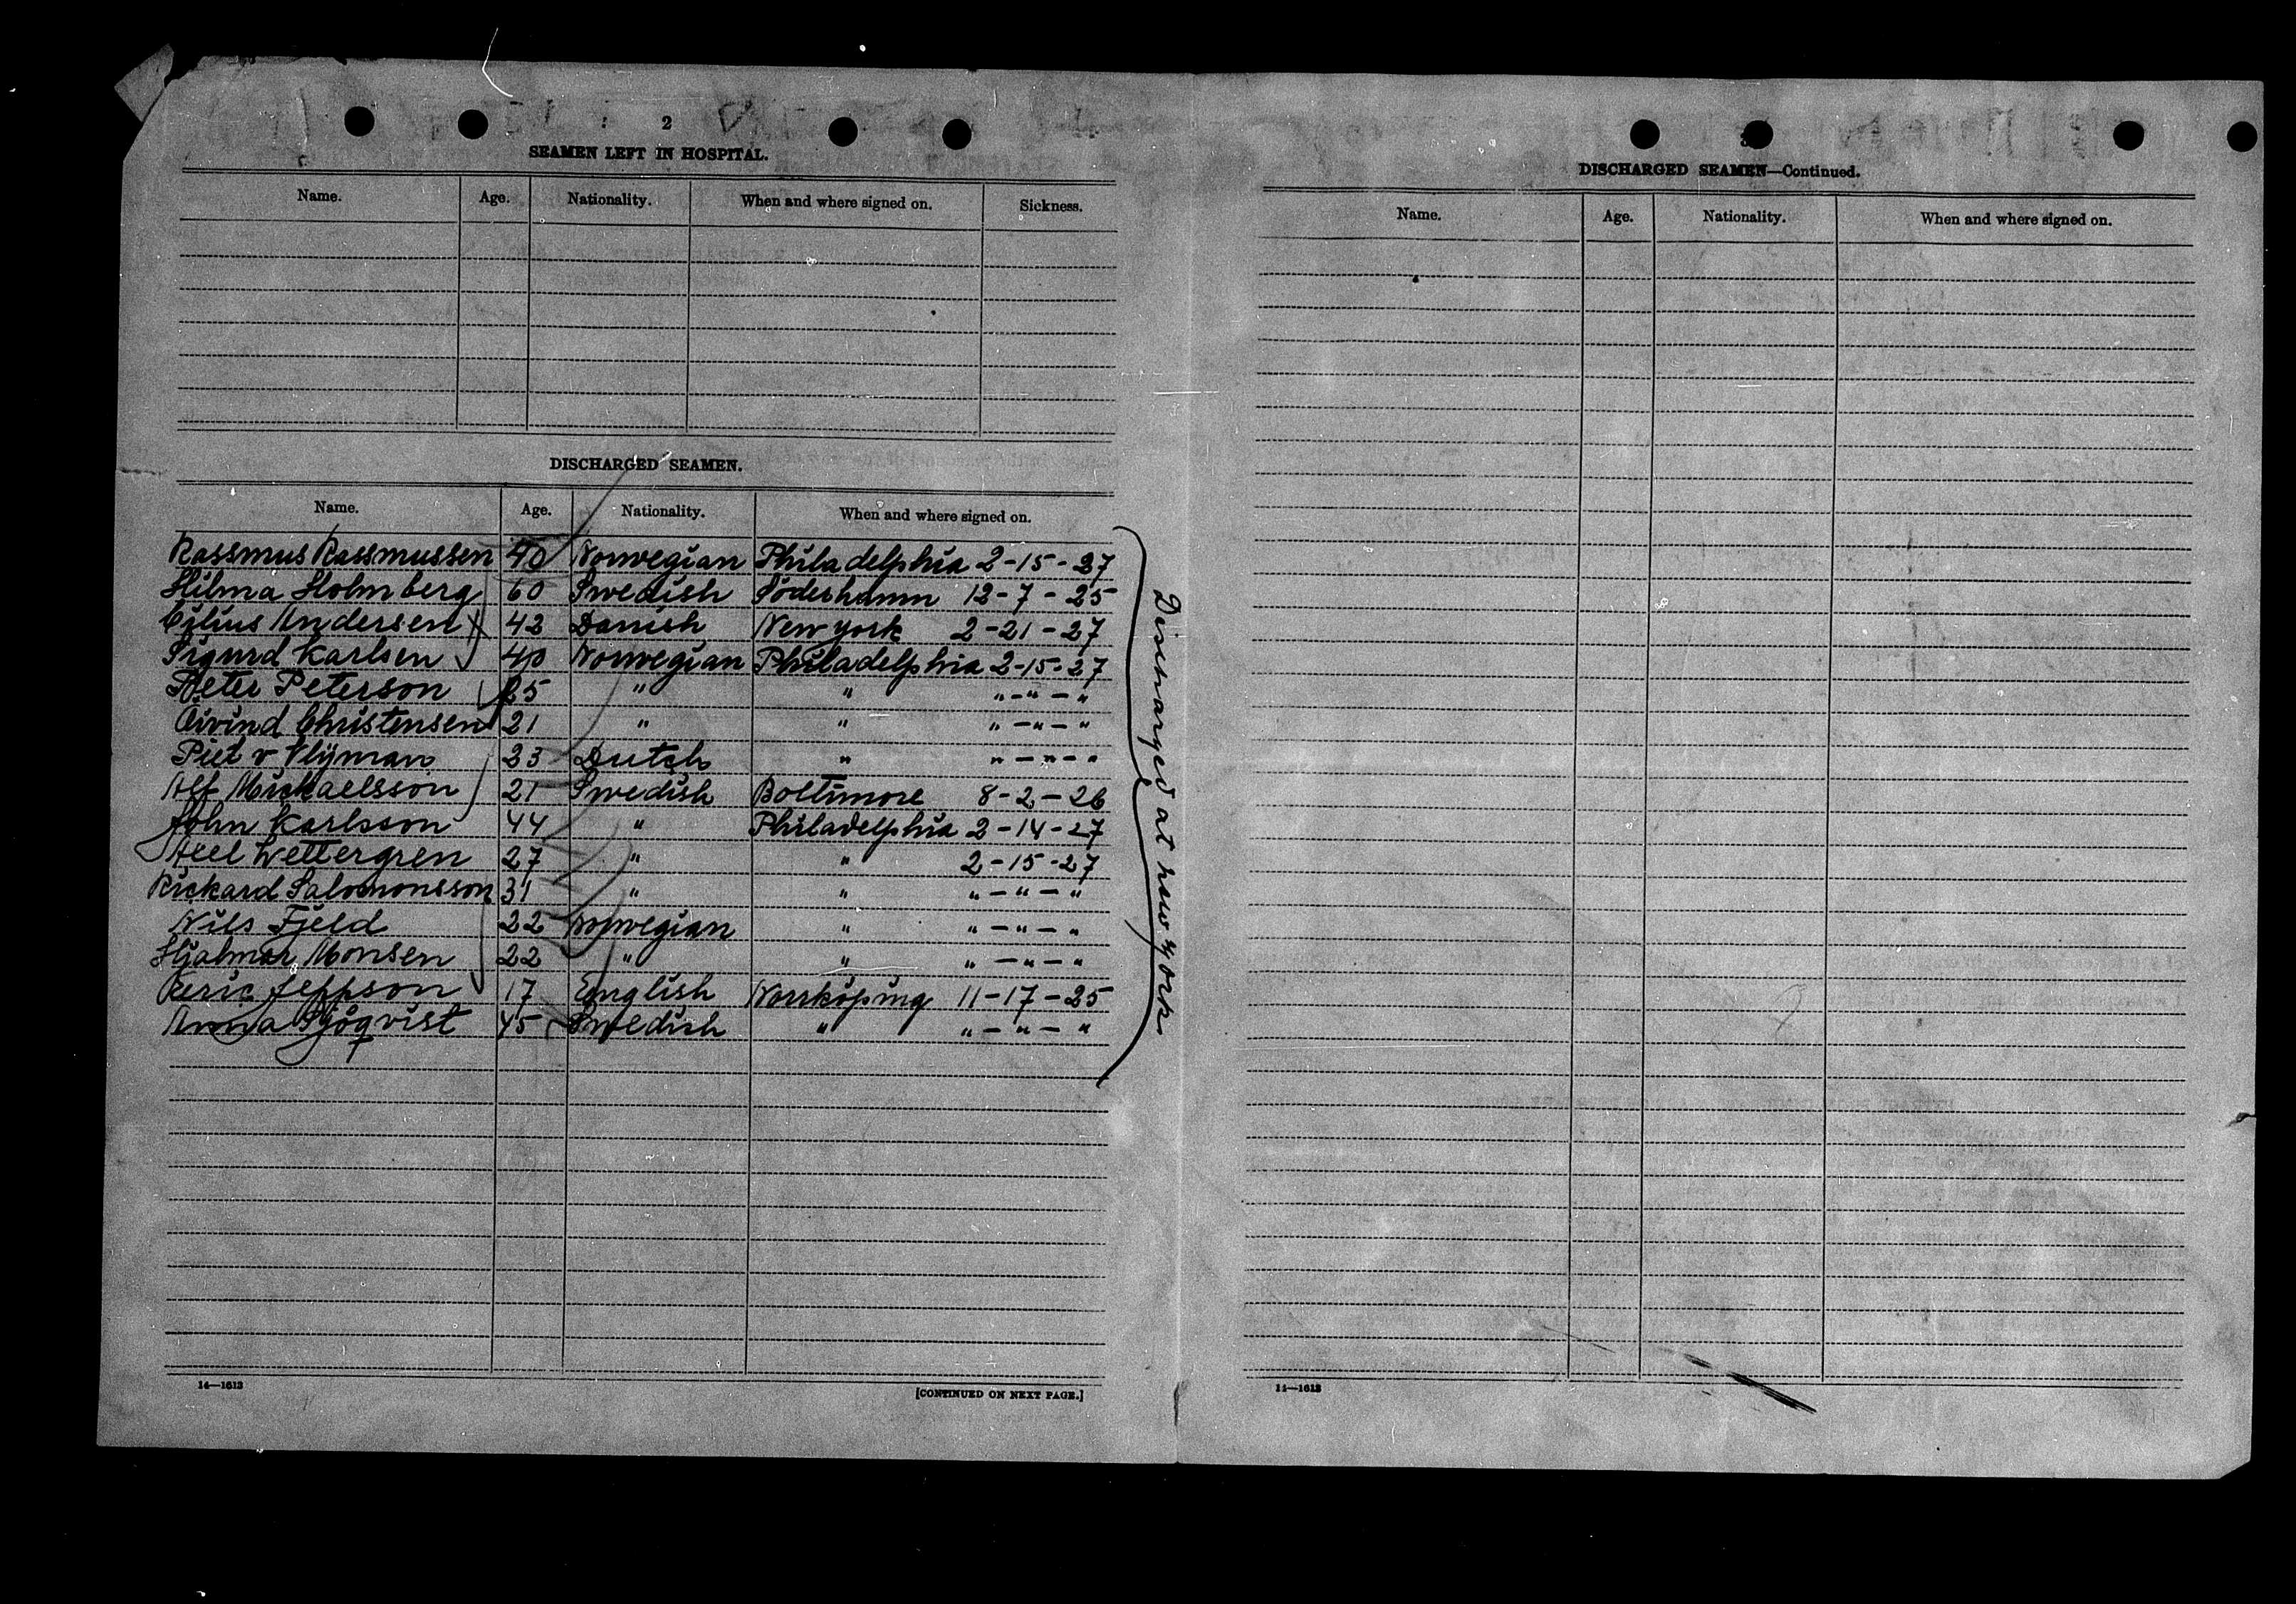 2
SEAMEN LEFT IN HOSPITAL.
Name. Age. Nationality. When and where signed on. Sickness.
DISCHARGED SEAMEN.
Name. Age. Nationality. When and where signed on.
Rassmus Rassmussen 40 Norwegian Philadelphia 2-15-27
Hilma Holmberg 60 Swedish Söderhamn 12-7-25
Cilius Andersen 42 Danish New york 2-21-27
Sigurd Karlsen 40 Norwegian Philadelphia 2-15-27
Peter Peterson 25 " " "-"-"
Oivind Christensen 21 " " "-"-"
Piet v Vlijman 23 Dutch " "-"-"
Alf Mickaelsson 21 Swedish Boltimore 8-2-26
John Karlsson 44 " Philadelphia 2-14-27
Axel Wettergren 27 " " 2-15-27
Rickard Salomonsson 31 " " "-"-"
Nils Fjeld 22 Norwegian " "-"-"
Hjalmar Monsen 22 " " "-"-"
Jeppson 17 English Norrköping 11-17-25
Anna Sjöqvist 45 Swedish " "-"-"
Discharged at new york
14—1613
[CONTINUED ON NEXT PAGE.]
3
DISCHARGED SEAMEN—Continued.
Name. Age. Nationality. When and where signed on.
14—1613